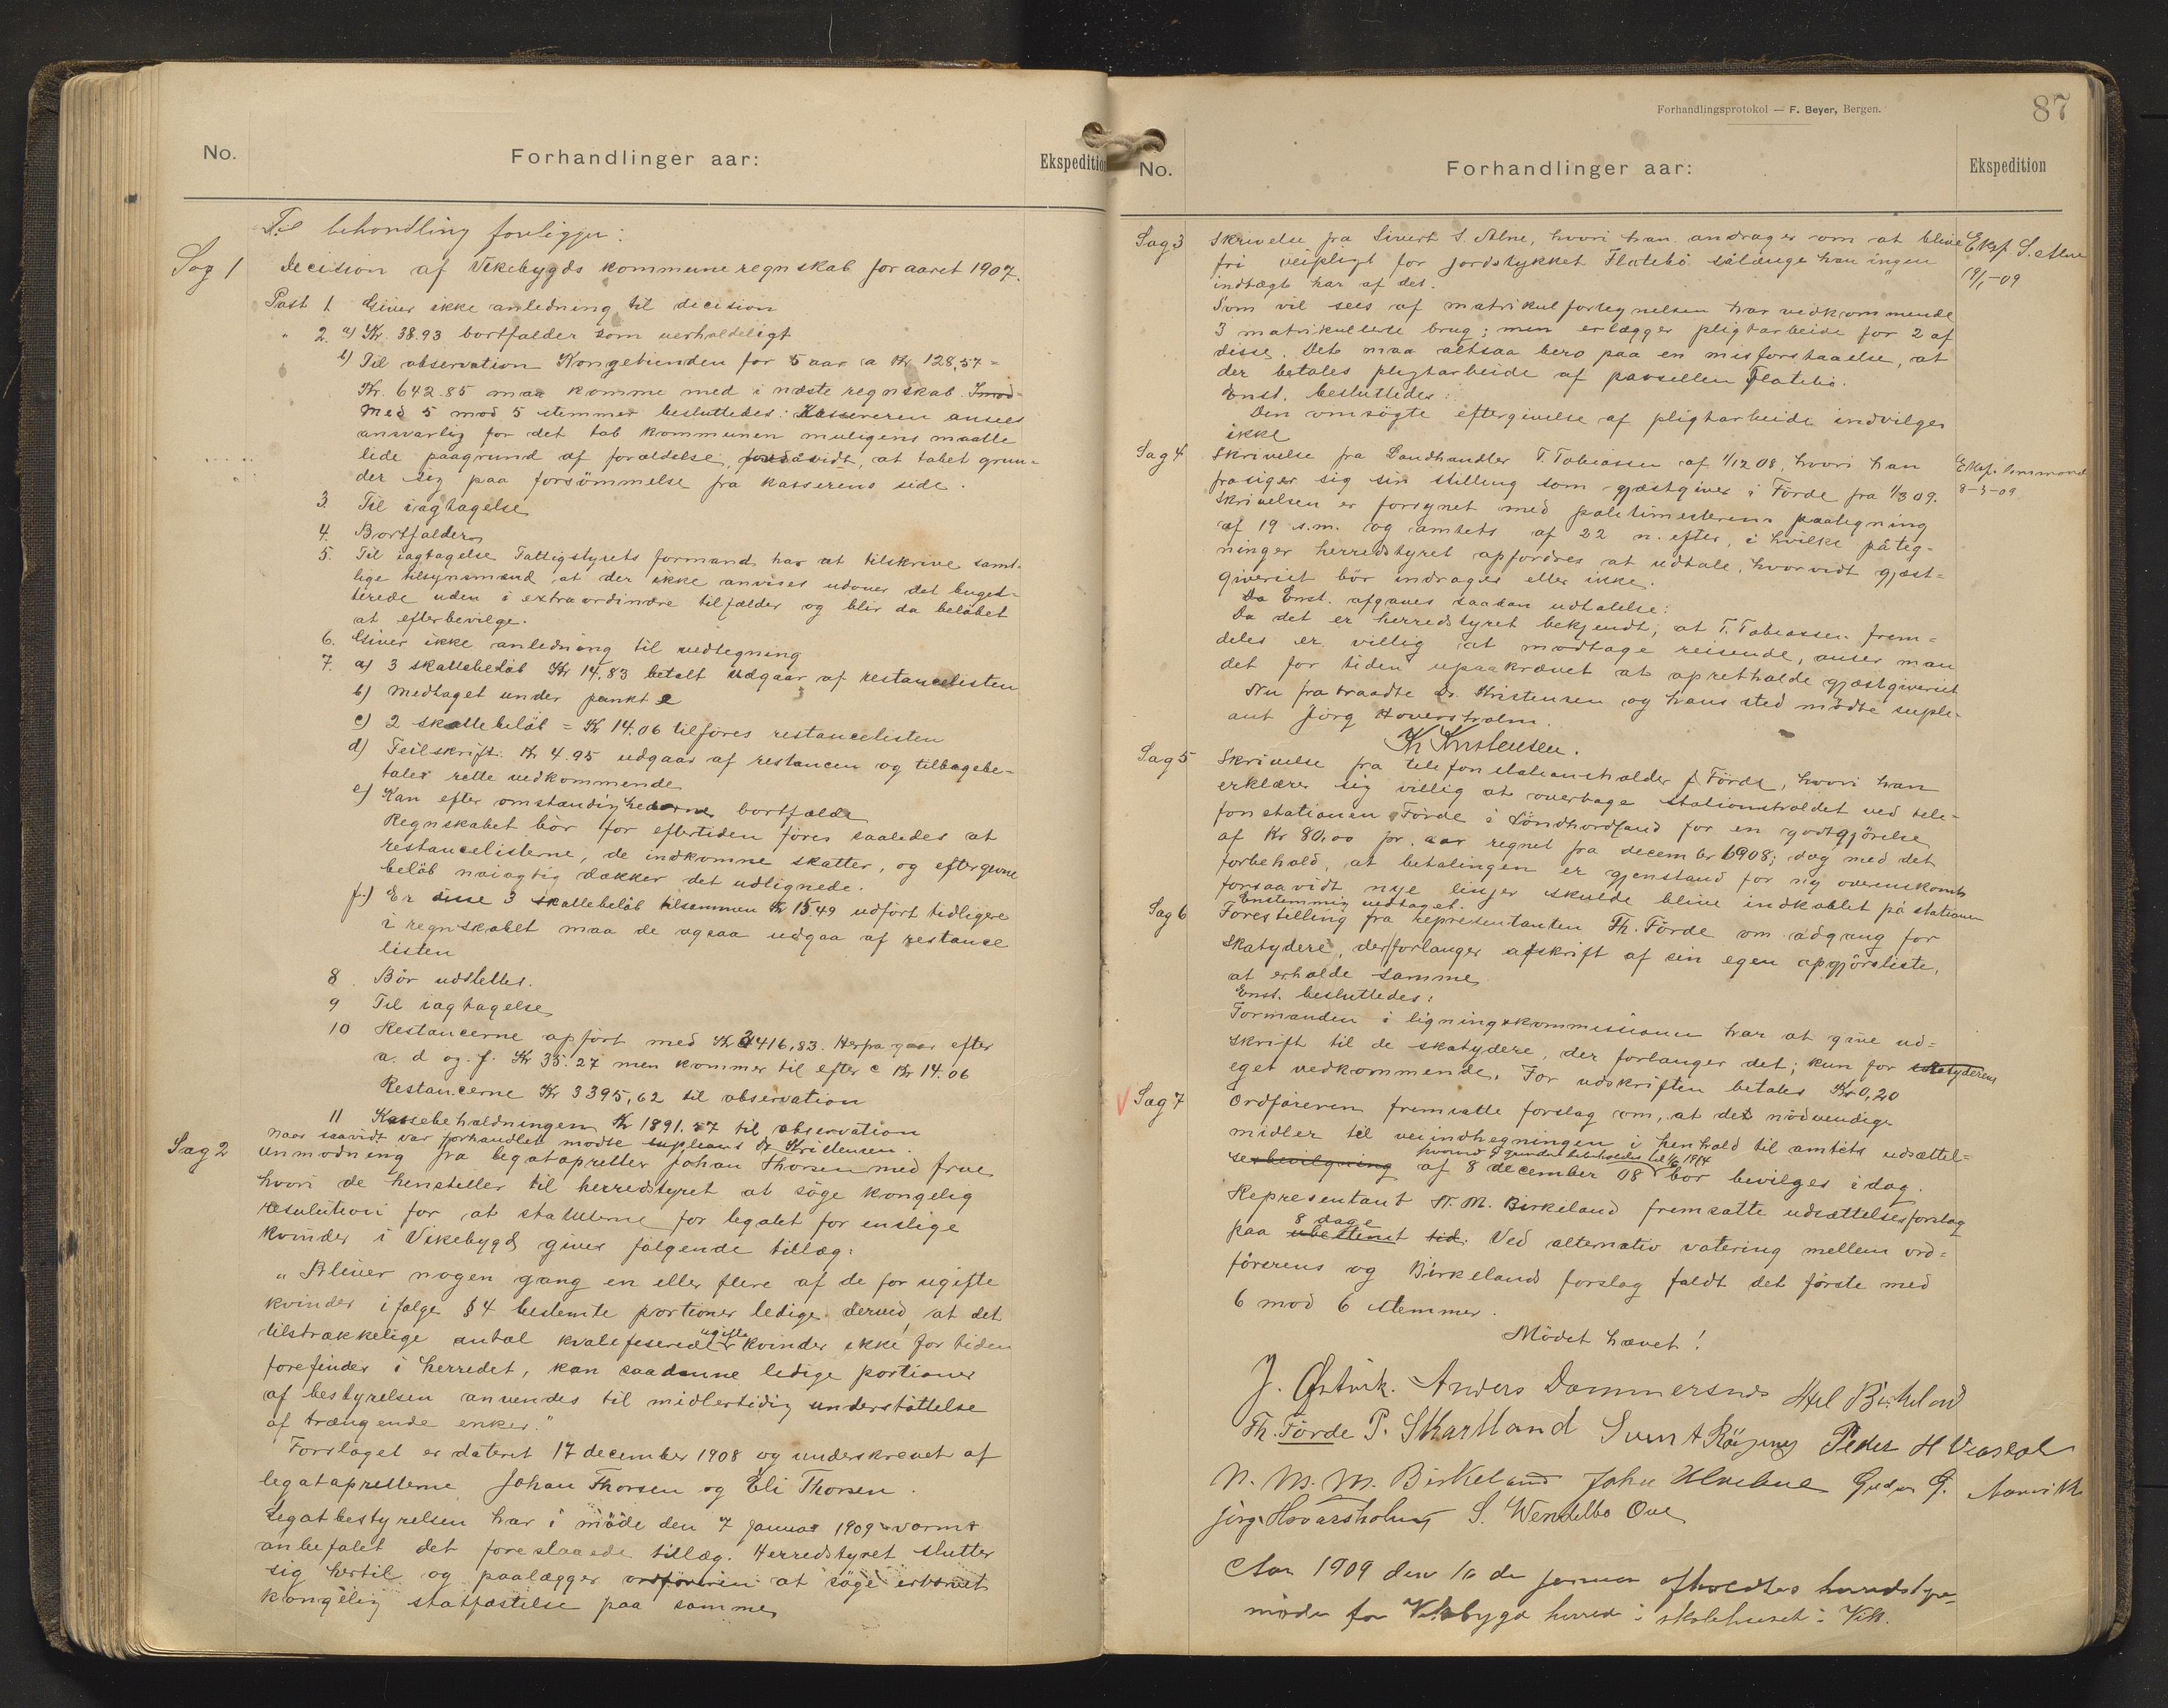 No.
Forhandlinger aar:
Ekspedition
Til behandling foreligger:
Sag 1 Decision af Vikebygds kommuneregnskab for aaret 1907.
Post 1. Giver ikke anledning til decision
" 2. a) Kr. 38.93 bortfalder som uerholdeligt
b) Til observation Kongetienden for 5 aar a Kr 128,57 =
Kr. 642.85 maa komme med i næste regnskab. Imod
Med 5 mod 5 stemmer besluttedes: Kassereren ansees
ansvarlig for det tab kommunen muligens maatte
lide paagrund af forældelse, forsåvidt, at tabet grun-
der sig paa forsömmelse fra kasserens side.
3. Til iagtagelse
4. Bortfalder
5. Til iagtagelse Fattigstyrets formand har at tilskrive samt-
lige tilsynsmænd, at der ikke anvises udover det buget-
terede uden i extraordinære tilfælder og blir da belöbet
at efterbevilge.
6. Giver ikke anledning til vedtegning
7. a) 3 skattebelöb Kr 14,83 betalt udgaar af restancelisten
b) Medtaget under punkt 2
c) 2 skattebelöb = Kr 14.06 tilföres restancelisten
d) Feilskrift: Kr 4.95 udgaar af restancen og tilbagebe-
tales rette vedkommende
e) Kan efter omstændighederne bortfalde
Regnskabet bör for eftertiden föres saaledes at
restancelisterne, de indkomne skatter, og eftergivne
belöb nöiagtig dækker det udlignede.
f.) Er disse 3 skattebelöb tilsammen Kr 15,49 udfört tidligere
i regnskabet maa de ogsaa udgaa af restance
listen
8. Bör udslettes.
9 Til iagtagelse
10 Restancerne opfört med Kr 3416,83. Herfra gaar efter
a. d og. f. Kr 35.27 men kommer til efter c Kr 14.06
Restancerne Kr 3395,62 til observation
11 Kassebeholdningen Kr 1891.57 til observation
Naar saavidt var forhandlet mödte supleant Dr Kristensen.
Sag 2 Anmodning fra legatopretter Johan Thorsen med frue
hvori de henstiller til herredstyret at söge kongelig
resolution for at statuterne for legatet for enslige
kvinder i Vikebygd gives fölgende tillæg:
"Bliver nogen gang en eller flere af de for ugifte
kvinder ifölge § 4 bestemte portioner ledige derved, at det
tilstrækkelige antal kvalifiserede ugifte kvinder ikke for tiden
forefindes i herredet, kan saadanne ledige portioner
af bestyrelsen anvendes til midlertidig understöttelse
af trængende enker."
Forslaget er dateret 17 december 1908 og underskrevet af
legatopretterne Johan Thorsen og Eli Thorsen.
Legatbestyrelsen har i möde den 7 januar 1909 varmt
anbefalet det foreslaaede tillæg. Herredstyret slutter
sig hertil og paalægger ordföreren at söge erhvervet
kongelig stadfæstelse paa samme
Forhandlingsprotokol — F. Beyer, Bergen.
87
No.
Forhandlinger aar:
Ekspedition
Sag 3 Skrivelse fra Sivert S. Alne, hvori han andrager om at blive
fri veipligt for jordstykket Flatebö sålænge han ingen
indtægt har af det.
Eksp. S. Alne
19/1-09
Som vil sees af matrikulfortegnelsen har vedkommende
3 matrikulerte brug; men erlægger pligtarbeide for 2 af
disse. Det maa altsaa bero paa en misforstaaelse, at
der betales pligtarbeide af parsellen Flatebö.
Enst. besluttedes:
Den omsögte eftergivelse af pligtarbeide indvilges
ikke
Sag 4 Skrivelse fra Landhandler T. Tobiassen af 1/12 08, hvori han
frasiger sig sin stilling som gjæstgiver i Förde fra 1/3 09.
Skrivelsen er forsynet med politimesterens paategning
af 19 s.m. og amtets af 22 n. efter, i hvilke påteg-
ninger herredstyret opfordres at udtale, hvorvidt gjæst-
giveriet bör indrages eller ikke.
Da Enst. afgaves saadan udtalelse:
Da det er herredstyret bekjendt, at T. Tobiassen frem-
deles er villig at modtage reisende, anser man
det for tiden upaakrævet at opretholde gjæstgiveriet
Nu fratraadte Dr. Kristensen og hans sted mödte suple-
ant Jörg Hovarsholm.
Kr Kristensen.
Sag 5 Skrivelse fra telefonstationsholder f. Förde, hvori han
erklærer sig villig at overtage stationsholdet ved tele-
fonstationen Förde i Söndhordland for en godtgjörelse
af Kr 80,00 pr. aar regnet fra december 1908; dog med det
forbehold, at betalingen er gjenstand for ny overenskomst
forsaavidt nye linjer skulde blive indkoblet på stationen
Enstemmig vedtaget.
Sag 6 Forestilling fra representanten Th. Förde om adgang for
skatydere, der forlanger afskrift af sin egen opgjörsliste,
at erholde samme
Enst. besluttedes:
Formanden i ligningskommissionen har at give ud-
skrift til de skatydere, der forlanger det; kun for skatyderens
eget vedkommende. For udskriften betales Kr 0,20
Sag 7 Ordföreren fremsatte forslag om, at det nödvendige
midler til veiindhegningen i henhold til amtets udsættel-
sesbevilgning af 8 december 08 bör bevilges i dag.
Representant N. M. Birkeland fremsatte udsættelsesforslag
paa ubestemt tid. 8 dage Ved alternativ votering mellem ord-
förerens og Birkelands forslag faldt det förste med
6 mod 6 stemmer.
Mödet hævet!
J. Østvik. Anders Dommersnes Hel Birkeland
Th. Förde P. Skartland Svent Röyning Peder H
N. M. M. Birkeland John G. Aarvik
Jörg Hovarsholm S. Wendelbo Ove
Aar 1909 den 16 de januar afholdtes herredstyre-
möde for Vikebygd herred i skolehuset i Vik.